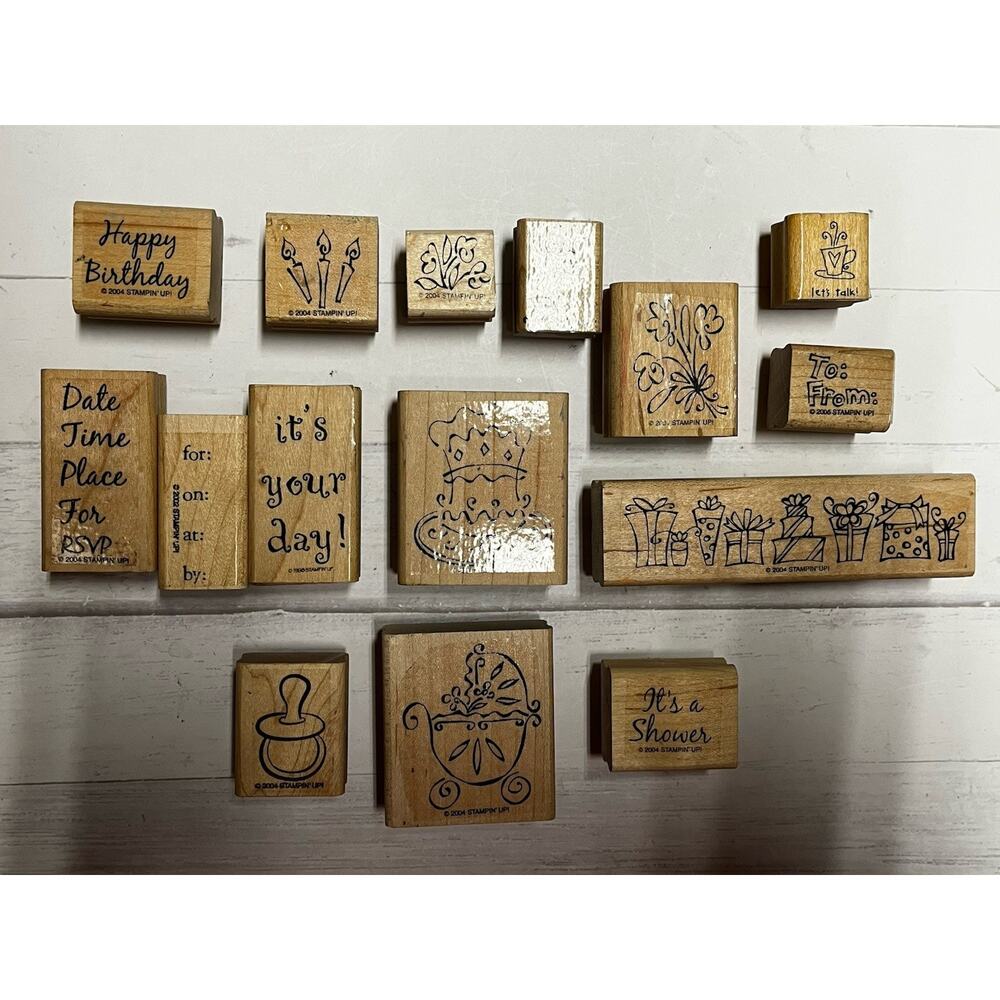 Happy
Birthday
© 2004 STAMPIN' UP!
© 2004 STAMPIN' UP!
© 2004 STAMPIN' UP!
let's talk!
STAMPIN' UP!
To:
From:
STAMPIN' UP!
Date
Time
Place
For
RSVP
© 2004 STAMPIN' UP!
for:
on:
at:
by:
© 2002 STAMPIN' UP!
it's
your
day!
STAMPIN' UP!
© 2004 STAMPIN' UP!
© 2004 STAMPIN' UP!
© 2004 STAMPIN' UP!
It's a
Shower
© 2004 STAMPIN' UP!